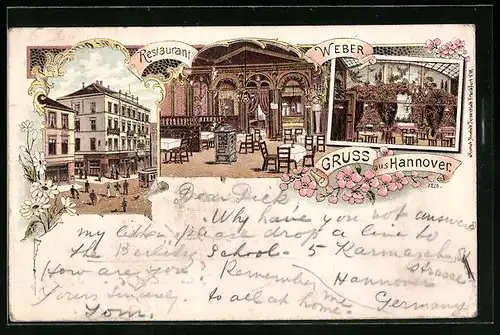 Restaurant WEBER
GRUSS aus Hannover.
1226.
Dear Dick
Why have you not answered
my letter, please drop a line to
the Berlitz School - 5 Karmarsch
strasse
How are you? Remember me Hannover
Yours sincerely. to all at home. Germany
Tom.